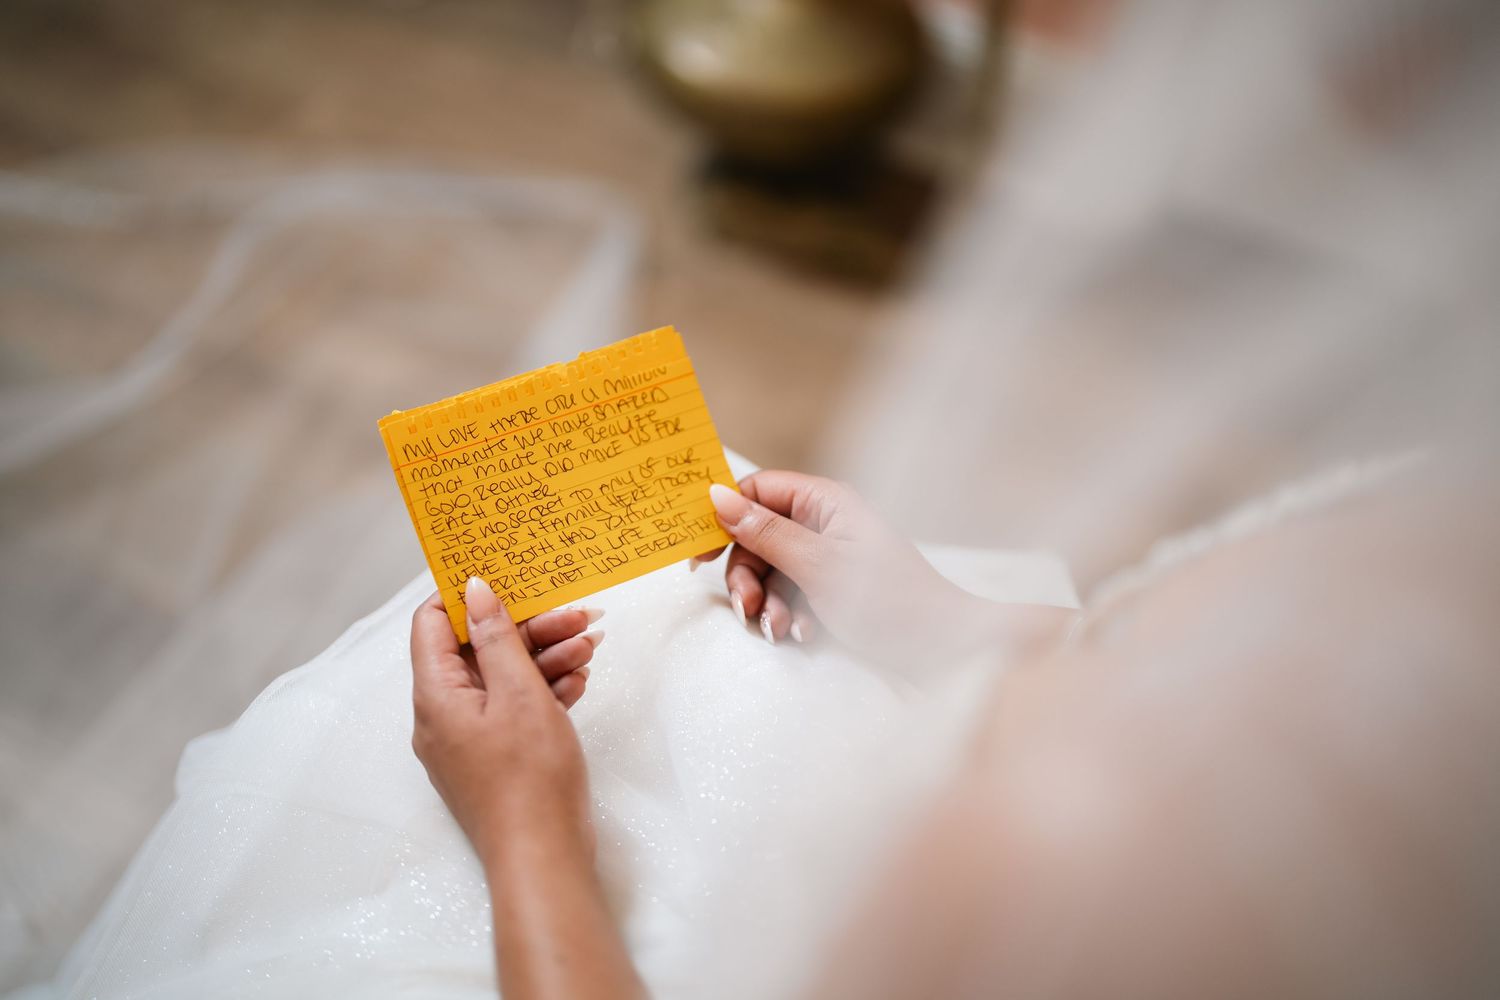 My LOVE tHERE are a million
moments we have SHARED
that made me REALIZE
GOD REALLY DID MAKE US FOR
EACH OTHER
ITS NO SECRET TO ANY OF OUR
FRIENDS & FAMILY HERE TODAY
WEVE BOTH HAD DIFFICULT
EXPERIENCES IN LIFE BUT
WHEN I MET YOU EVERYTHING